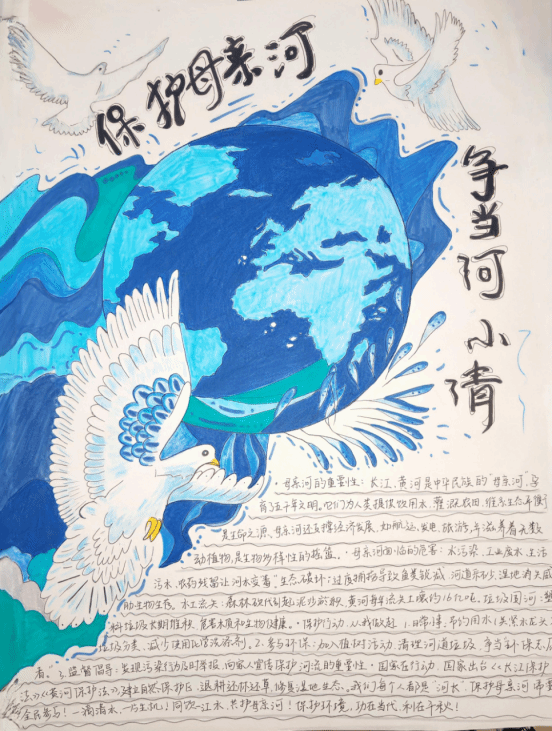 保护母亲河
争当河小清
·母亲河的重要性：长江、黄河是中华民族的“母亲河”，孕
育了五千年文明。它们为人类提供饮用水、灌溉农田、维系生态平衡
是生命之源。母亲河还支撑经济发展，如航运、发电、旅游，并滋养着无数
动植物，是生物多样性的摇篮。·母亲河面临的危害：水污染：工业废水、生活
污水、农药残留让河水变毒 生态破坏：过度捕捞导致鱼类锐减 河道采砂、湿地消失威
胁生物生存。水土流失：森林砍伐引起泥沙淤积，黄河每年流失土壤约16亿吨。垃圾围河：塑
料垃圾长期堆积，危害水质和生物健康。·保护行动，从我做起 1.日常
垃圾分类、减少使用化学洗涤剂。2.参与环保：加入植树活动、清理河道垃圾，争当
者。3.监督倡导：发现污染行为及时举报，向家人宣传保护河流的重要性·国家在行动 国家出台《长江保护
法》《黄河保护法》，建立自然保护区，退耕还林还草，修复湿地生态。我们每个人都是“河长”，保护母亲河需要
全民参与！一滴清水，一片生机！同饮一江水，共护母亲河！保护环境，功在当代，利在千秋！